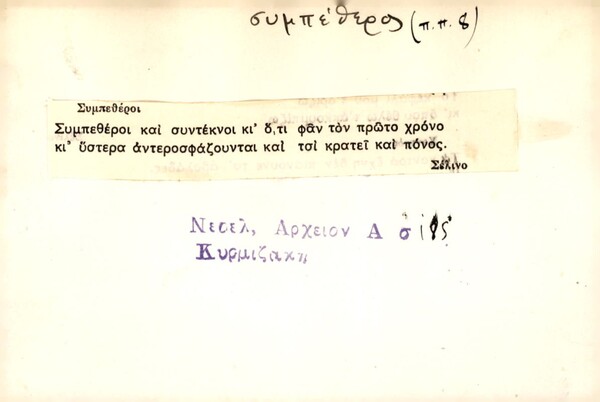 συμπέθερος (π.π. 8)
Συμπεθέροι
Συμπεθέροι καὶ συντέκνοι κι' ὅ,τι φᾶν τὸν πρῶτο χρόνο
κι' ὕστερα ἀντεροσφάζουνται καὶ τσὶ κρατεῖ καὶ πόνος.
Σέλινο
Νεσελ, Αρχειον Α σ
Κυρμιζακη